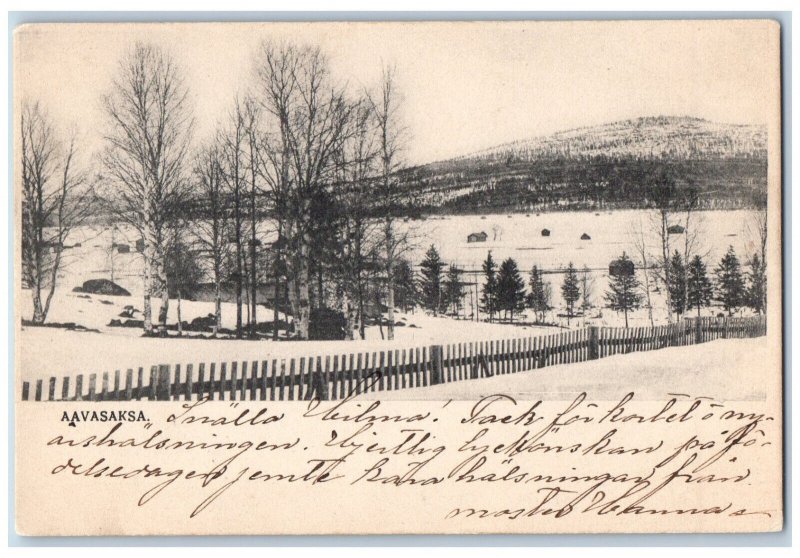 AAVASAKSA. Snälla Hilma! Tack för kortet o ny-
årshälsningen. Hjertlig lyckönskan på fö-
delsedagen jemte kära hälsningar från
moster Hanna